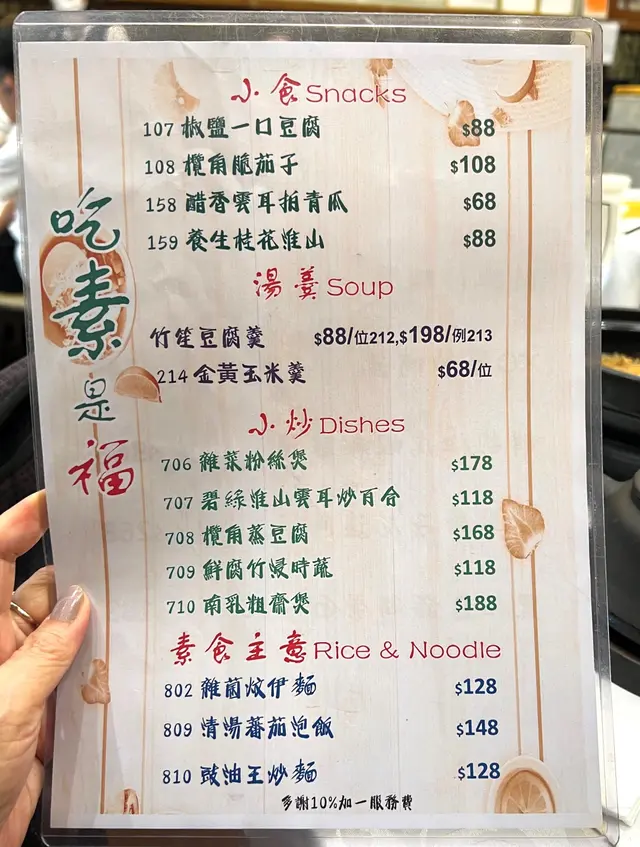 吃素是福
小食 Snacks
107 椒鹽一口豆腐 $88
108 欖角脆茄子 $108
158 醋香雲耳拍青瓜 $68
159 養生桂花淮山 $88
湯羹 Soup
竹笙豆腐羹 $88/位212,$198/例213
214 金黃玉米羹 $68/位
小炒 Dishes
706 雜菜粉絲煲 $178
707 碧綠淮山雲耳炒百合 $118
708 欖角蒸豆腐 $168
709 鮮腐竹浸時蔬 $118
710 南乳粗齋煲 $188
素食主意 Rice & Noodle
802 雜菌炆伊麵 $128
809 清湯蕃茄泡飯 $148
810 豉油王炒麵 $128
多謝10%加一服務費